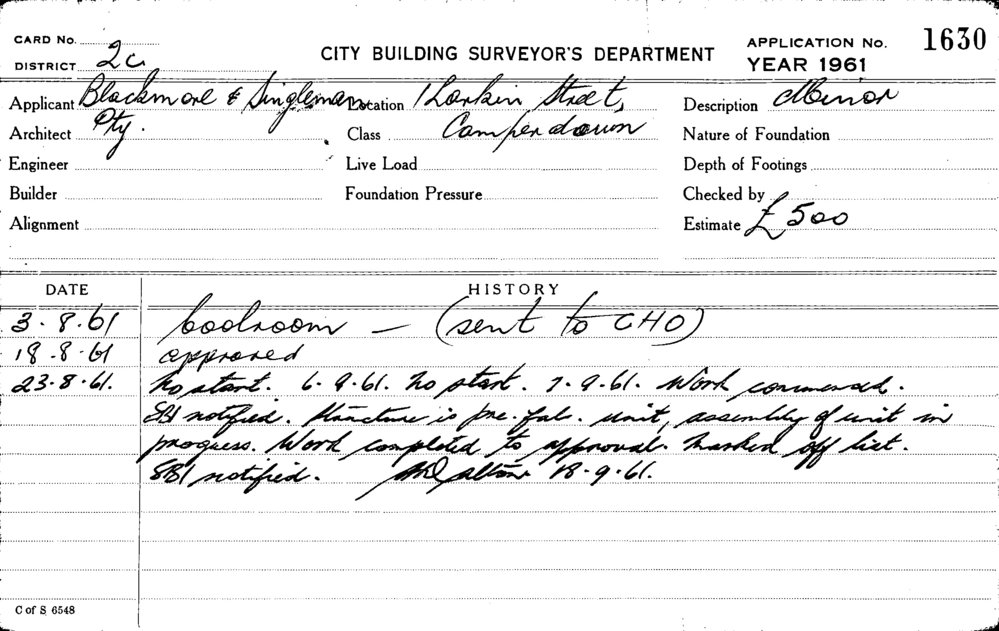 CARD No.
DISTRICT 2c
CITY BUILDING SURVEYOR'S DEPARTMENT
APPLICATION No. 1630
YEAR 1961
Applicant Blackmore & Singleman Pty.
Location 1 Larkin Street, Camperdown
Description Minor
Architect
Class
Nature of Foundation
Engineer
Live Load
Depth of Footings
Builder
Foundation Pressure
Checked by
Alignment
Estimate £500
DATE HISTORY
3.8.61 coolroom — (sent to CHO)
18.8.61 approved
23.8.61. No start. 6.9.61. No start. 7.9.61. Work commenced.
SBI notified. Structure is pre.fab. unit, assembly of unit in
progress. Work completed to approval. Marked off list.
SBI notified. 18.9.61.
C of S 6548